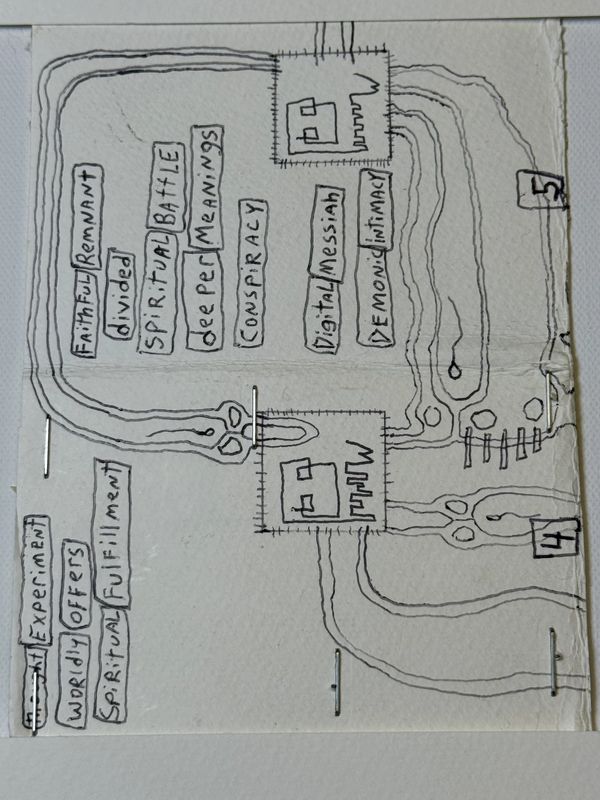 thought Experiment
WORLDLY OFFERS
SPiRitUAL FulFillment
FAithFuL RemNANt
divided
SPiRitUAL BAttLE
deepeR MeANiNgs
CONSPiRACY
DigitAL Messiah
DEMONiC iNtiMACY
4
5